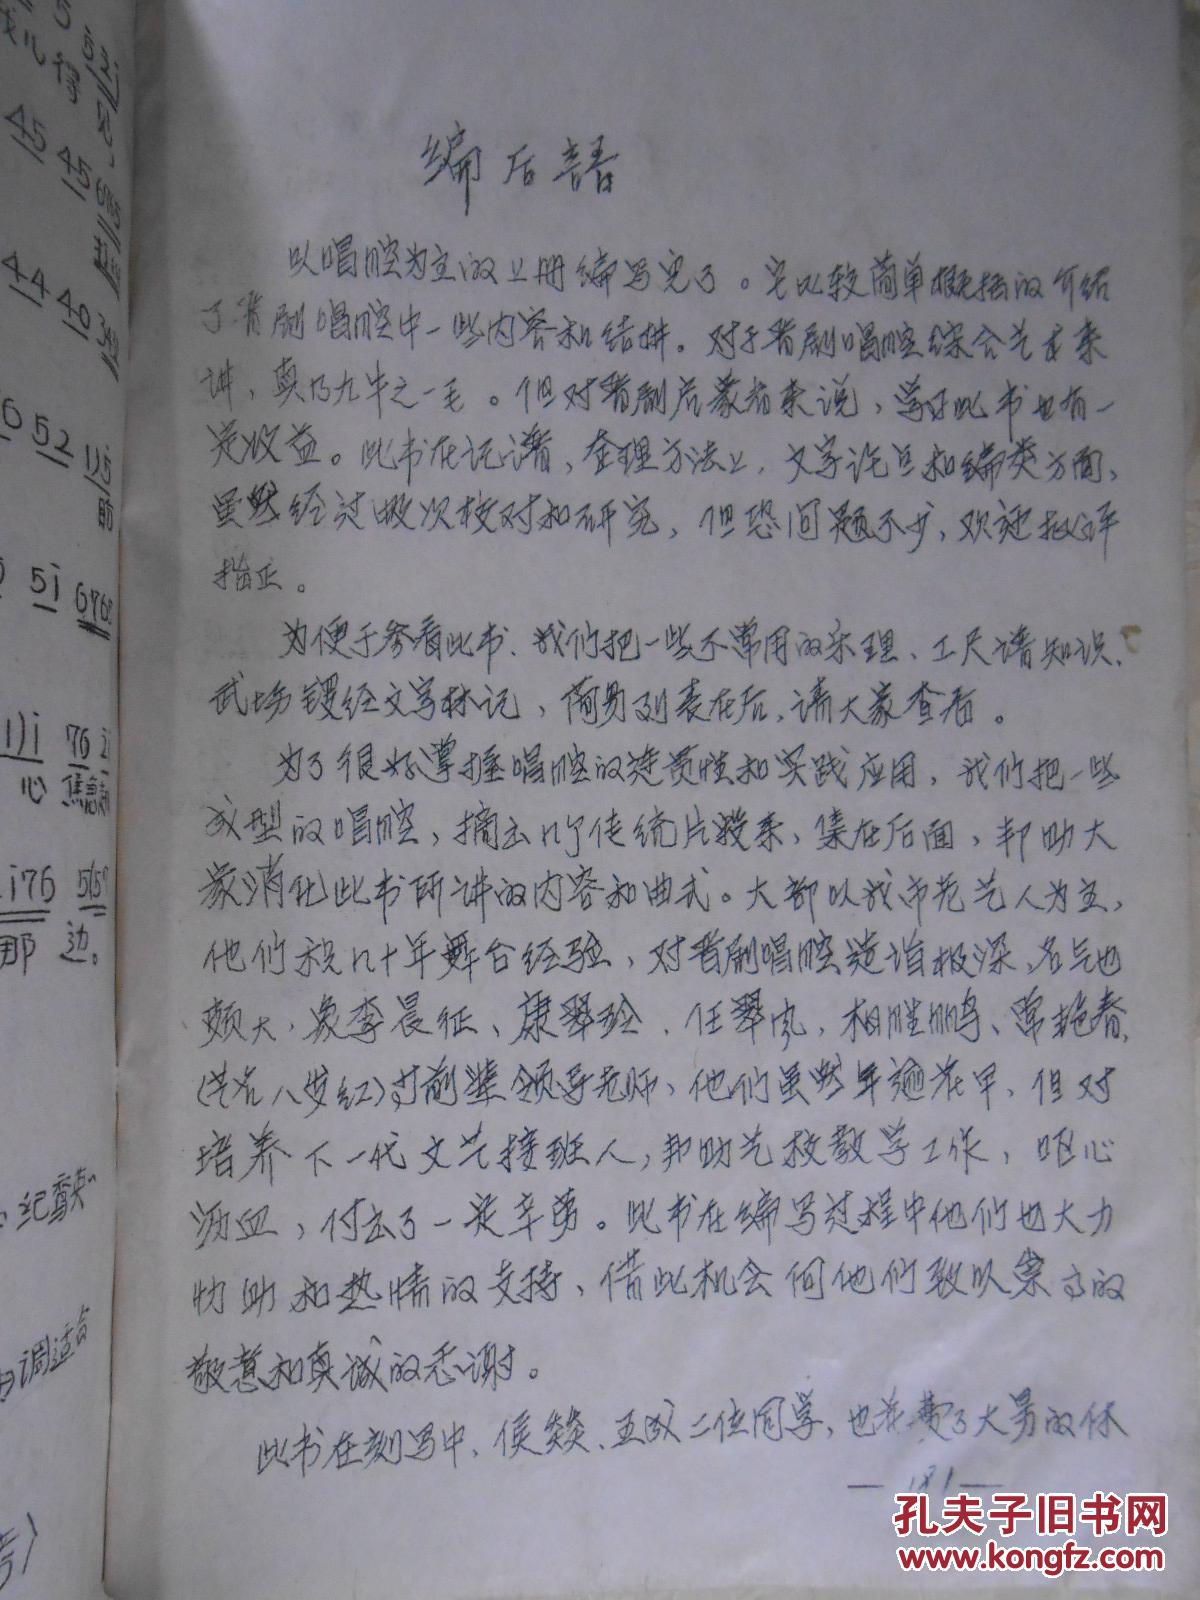 编后語
以唱腔为主的上册编写完了。它比较简单概括的介绍
了晋剧唱腔中一些内容和结构。对于晋剧唱腔综合艺术来
讲，真乃九牛之一毛。但对晋剧启蒙者来说，学好此书也有一
定收益。此书在记谱，整理方法上，文字论足和编类方面，
虽然经过数次校对和研究，但恐问题不少，欢迎批评
指正。
为便于参看此书、我们把一些不常用的乐理、工尺谱知识、
武场锣经文字标记，简易列表在后，请大家查看。
为了很好掌握唱腔的连贯性和实践应用，我们把一些
成型的唱腔，摘出几个传统片段来，集在后面，帮助大
家消化此书所讲的内容和曲式。大都以我市老艺人为主，
他们积几十年舞台经验，对晋剧唱腔造诣极深、名气也
颇大，象李晨征、康翠玲、任翠凤，相胜鹏、常艳春，
(艺名八岁红)等前辈领导老师，他们虽然年逾花甲、但对
培养下一代文艺接班人，帮助艺校教学工作，呕心
沥血，付出了一定辛劳。此书在编写过程中他们也大力
协助和热情的支持，借此机会向他们致以崇高的
敬意和真诚的感谢。
此书在刻写中、侯燚、五成二位同学，也花费了大量的休
—181—
45 45 6765
44 40
6 52 1)5
51 676
1)i 76 i
心 焦急
i76
那 边。
调适合
孔夫子旧书网
www.kongfz.com